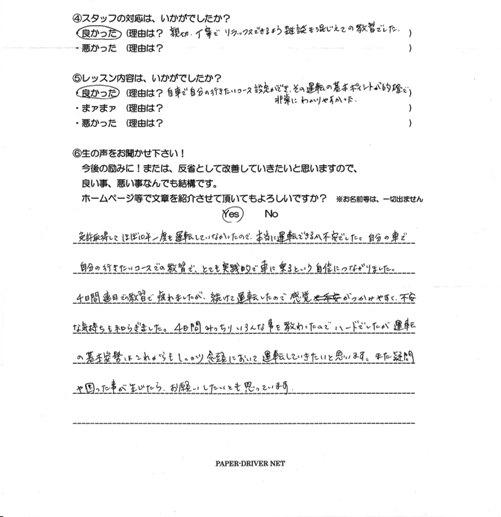 ④スタッフの対応は、いかがでしたか？
良かった （理由は？ 親切、丁寧で リラックスできるよう雑談を混じえての教習でした。 ）
・悪かった （理由は？ ）
⑤レッスン内容は、いかがでしたか？
・良かった （理由は？ 自車で自分の行きたいコース設定ができ、その運転の基本ポイントが的確で ）
非常にわかりやすかった。
・まァまァ （理由は？ ）
・悪かった （理由は？ ）
⑥生の声をお聞かせ下さい！
今後の励みに！または、反省として改善していきたいと思いますので、
良い事、悪い事なんでも結構です。
ホームページ等で文章を紹介させて頂いてもよろしいですか？ ※お名前等は、一切出ません
Yes No
免許取得してほぼ10年一度も運転していなかったので、本当に運転できるか不安でした。自分の車で
自分の行きたいコースでの教習で、とても実践的で車に乗るという自信につながりました。
4日間連日の教習で疲れましたが、続けて運転したので感覚がつかみやすく、不安
な気持ちも和らぎました。4日間みっちりいろんな事を教わったのでハードでしたが運転
の基本姿勢はこれからもしっかり念頭において運転していきたいと思います。また疑問
や困った事が生じたら、お願いしたいとも思っています。
PAPER-DRIVER NET